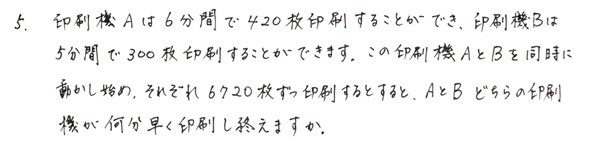 5. 印刷機Aは6分間で420枚印刷することができ、印刷機Bは
5分間で300枚印刷することができます。この印刷機AとBを同時に
動かし始め、それぞれ6720枚ずつ印刷するとすると、AとBどちらの印刷
機が何分早く印刷し終えますか。